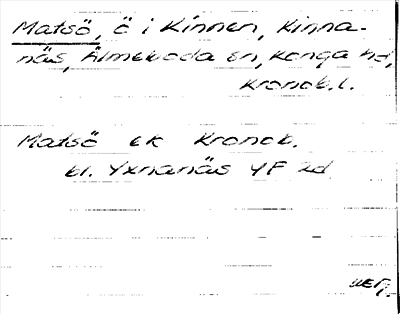 Matsö, ö i Kinnen, Kinna-
näs, Älmeboda sn, Konga hd,
Kronob. l.
Matsö ek Kronob.
bl. Yxnanäs 4F